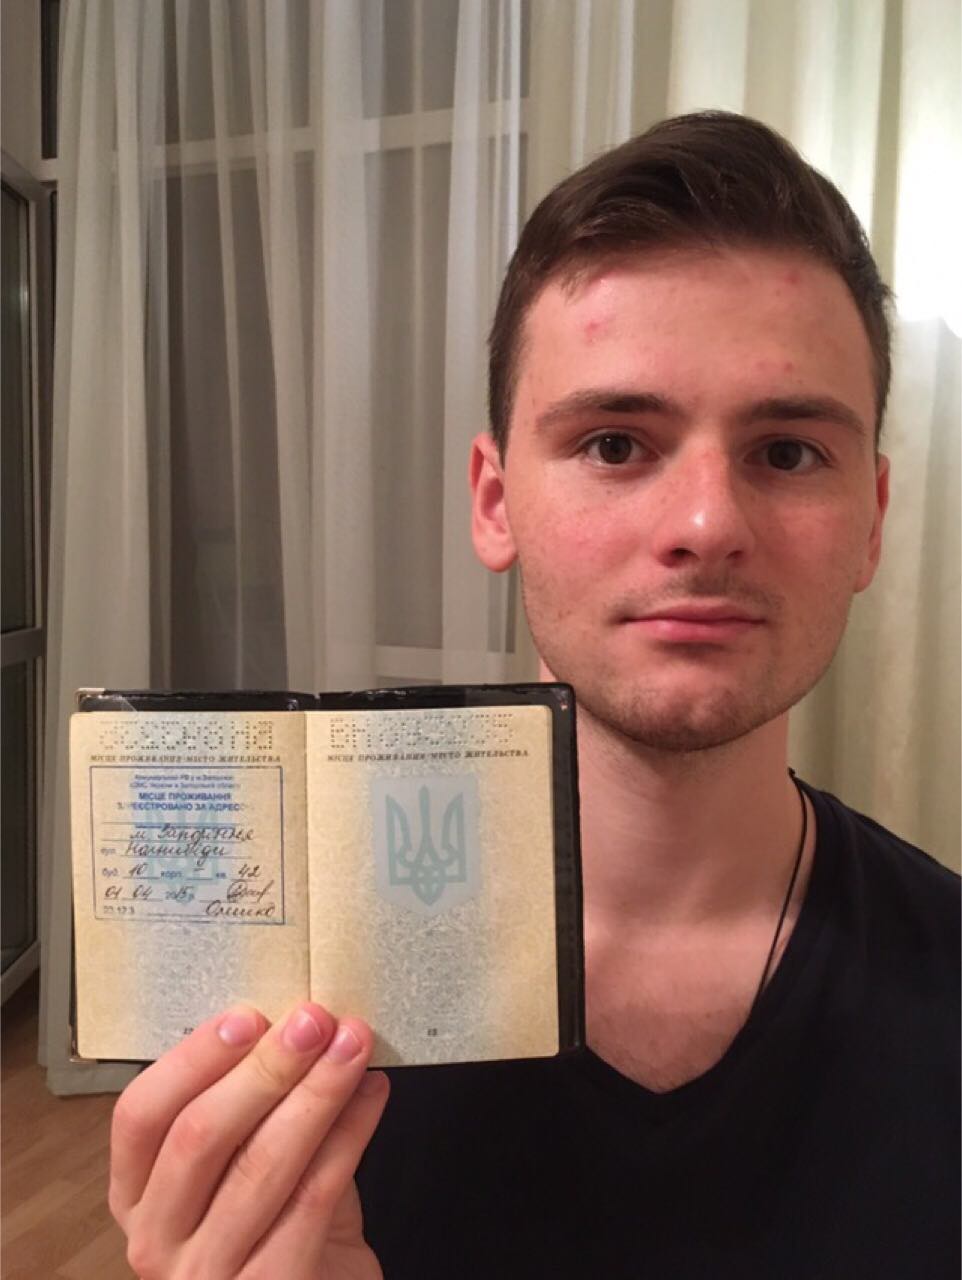 МІСЦЕ ПРОЖИВАННЯ·МЕСТО ЖИТЕЛЬСТВА
Комунарський РВ у м. Запоріжжі
України в Запорізькій області
МІСЦЕ ПРОЖИВАННЯ
ЗАРЕЄСТРОВАНО ЗА АДРЕСОЮ
м. Запоріжжя
вул. Нагнибіди
буд. 10 корп. – кв. 42
01 04 2015р.
12
МІСЦЕ ПРОЖИВАННЯ·МЕСТО ЖИТЕЛЬСТВА
13